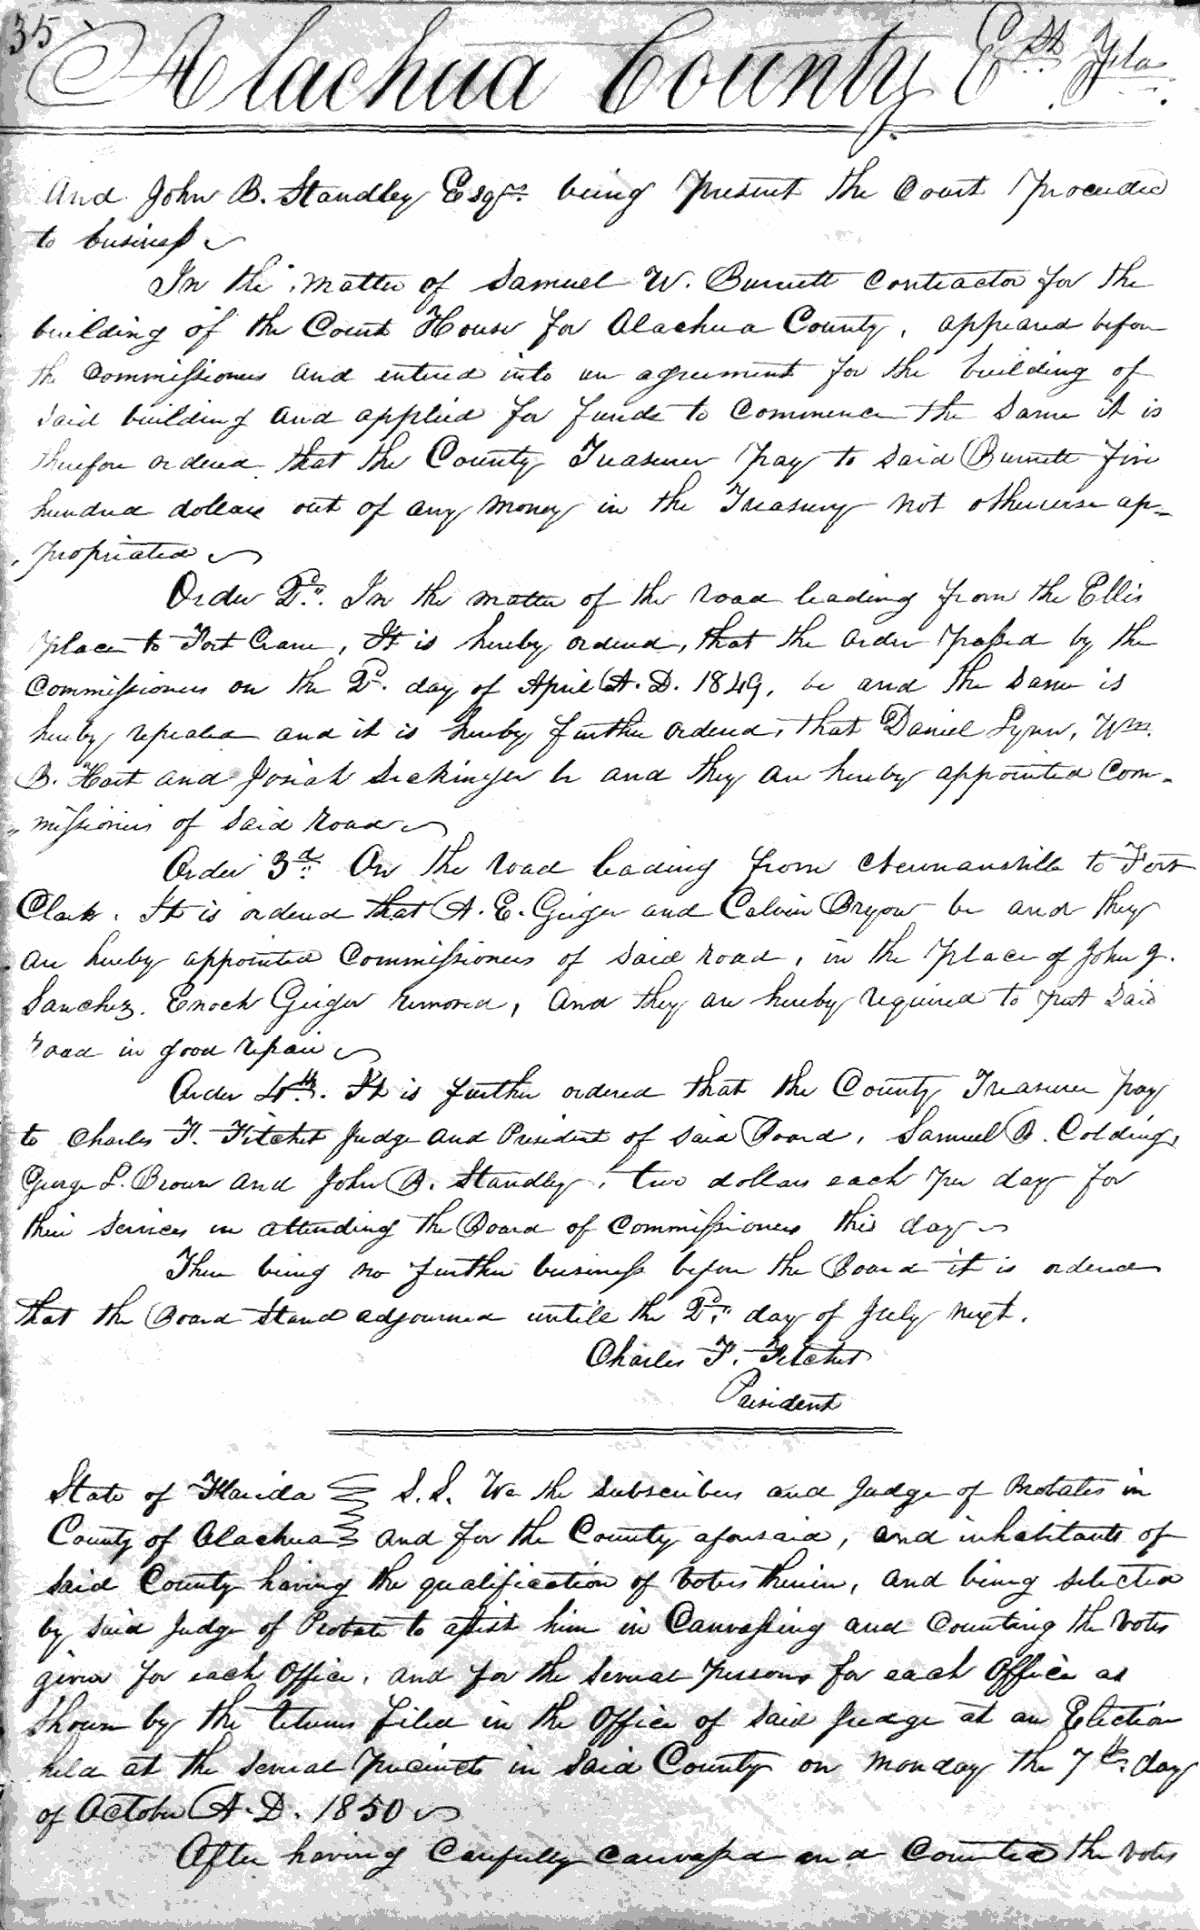 35
Alachua County Est. Fla.
And John B. Standley Esqrs. being present the Court proceeded
to business
In the matter of Samuel W. Burnett Contractor for the
building of the Court House for Alachua County, appeared before
the Commissioners and entered into an agreement for the building of
said building and applied for funds to commence the same it is
therefore ordered that the County Treasurer pay to said Burnett five
hundred dollars out of any money in the Treasury not otherwise ap=
propriated
Order 2d. In the matter of the road leading from the Ellis
place to Fort Crane, It is hereby ordered, that the order passed by the
Commissioners on the 2d. day of April A. D. 1849, be and the same is
hereby repealed and it is hereby further ordered, that Daniel Lynn, Wm.
B. Hart and Josiah Seckinger be and they are hereby appointed Com=
missioners of said road
Order 3d. On the road leading from Newnansville to Fort
Clark. It is ordered that A. E. Geiger and Calvin Bryan be and they
are hereby appointed Commissioners of said road, in the place of John J.
Sanchez. Enoch Geiger removed, and they are hereby required to put said
road in good repair
Order 4th. It is further ordered that the County Treasurer pay
to Charles F. Fitchet Judge and President of said Board, Samuel B. Colding,
George L. Brown and John B. Standley, two dollars each per day for
their services in attending the Board of Commissioners this day
There being no further business before the Board it is ordered
that the Board stand adjourned untill the 2d. day of July next.
Charles F. Fitchet
President
State of Florida S. S. We the subscribers and Judge of Probates in
County of Alachua and for the County aforesaid, and inhabitants of
said County having the qualification of Voters therein, and being selected
by said Judge of Probate to assist him in Canvassing and Counting the votes
given for each Office, and for the several persons for each Office as
shown by the returns filed in the Office of said Judge at an Election
held at the several precincts in said County on Monday the 7th. day
of October A. D. 1850
After having Carefully canvassed and Counted the votes